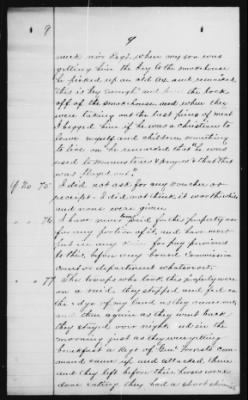 9
9
neck nor legs, when my son was
getting him the key to the smokehouse
he picked up an old axe and remarked
this is key enough and the lock
off of the smokehouse and when they
were taking out the last piece of meat
I begged him if he was a christian to
leave myself and children something
to live on he remarked that he was
used to womens tears & prayers & that this
was "played out"
Q No 75 I did not ask for any voucher or
receipt. I did not think it worth while
and none were given
" " 76 I have never been paid for this property or
for any portion of it, and have never
put in any claim for pay previous
to this, before any board commission
council or department whatsoever.
" " 77 The troops who took this property were
on a raid, they stopped and fed on
the edge of my land as they came out
and then again as they went back,
they stayed over night and in the
morning just as they were getting
breakfast a Regt of Genl Forrests com
mand came up and attacked them
and they left before their horses were
done eating they had a short skirmish